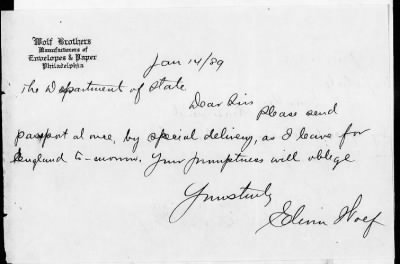 Wolf Brothers
Manufacturers of
Envelopes & Paper
Philadelphia
Jan 14/89
The Department of State
Dear Sirs
Please send
passport at once, by special delivery, as I leave for
England to-morrow. Your promptness will oblige
Yours truly
Edwin Wolf